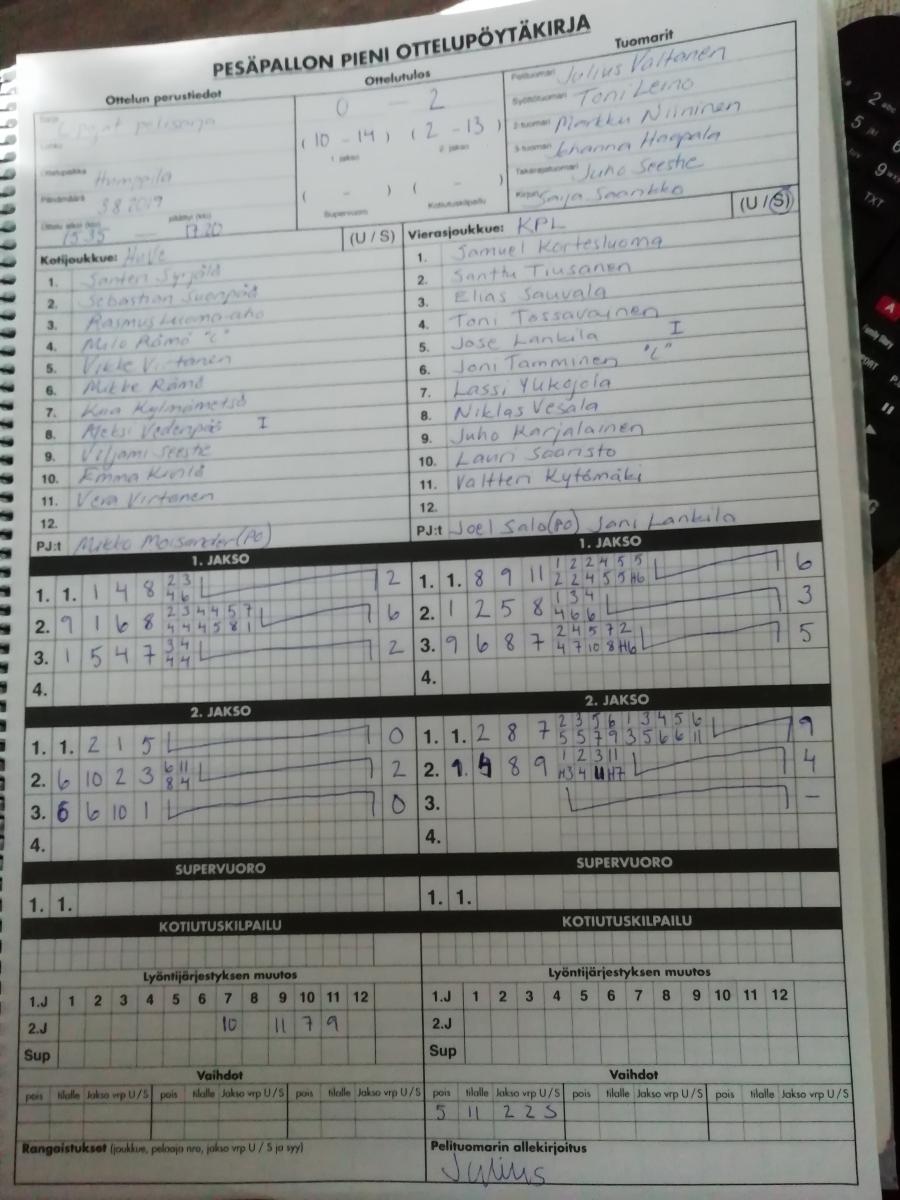 PESÄPALLON PIENI OTTELUPÖYTÄKIRJA
Ottelun perustiedot
Ottelutulos
Tuomarit
Sarja
pelisarja
Ottelupaikka Humppila
Päivämäärä 3.8.2019
15.35 — 17.20
0 - 2
( 10 - 14 ) ( 2 - 13 )
1. jakso 2. jakso
( - ) ( - )
Supervuoro Kotiutuskilpailu
Pelituomari Julius Valtanen
Syöttötuomari Toni Leino
2-tuomari Markku Niininen
3-tuomari Johanna Haapala
Takarajatuomari Juho Seeste
Kirjuri Saija Saarikko
Kotijoukkue: HuVe (U / S)
1. Santeri Syrjälä
2. Sebastian Suonpää
3. Rasmus Luoma-aho
4. Milo Rämö "C"
5. Vikke Virtanen
6. Mikke Rämö
7. Kylmämetsä
8. Aleksi Vedenpää I
9. Viljami Seeste
10. Emma
11. Vera Virtanen
12.
PJ:t Mikko Moisander (PO)
Vierasjoukkue: KPL (U / S)
1. Samuel Kortesluoma
2. Santtu Tiusanen
3. Elias Sauvala
4. Toni Tossavainen
5. Jose Lankila I
6. Joni Tamminen "C"
7. Lassi Yliko​jola
8. Niklas Vesala
9. Juho Karjalainen
10. Lauri Saaristo
11. Valtteri Kytömäki
12.
PJ:t Joel Salo (PO) Jani Lankila
1. JAKSO
1. 1. 1 4 8 2 3 2
4 6
2. 9 1 6 8 2 3 4 4 5 7 6
4 4 4 5 8 1
3. 1 5 4 7 3 4 2
4 4
4.
1. JAKSO
1. 1. 8 9 11 1 2 2 4 5 5 6
2 2 4 5 5 H6
2. 1 2 5 8 1 3 4 3
4 6 6
3. 9 6 8 7 2 4 5 7 2 5
4 7 10 8 H6
4.
2. JAKSO
1. 1. 2 1 5 0
2. 6 10 2 3 6 11 2
8 4
3. 6 6 10 1 0
4.
2. JAKSO
1. 1. 2 8 7 2 3 5 6 1 3 4 5 6 9
5 5 7 9 3 5 6 6 11
2. 8 9 1 2 3 11 4
H3 4 H7
3. -
4.
SUPERVUORO
1. 1.
SUPERVUORO
1. 1.
KOTIUTUSKILPAILU
KOTIUTUSKILPAILU
Lyöntijärjestyksen muutos
1.J 1 2 3 4 5 6 7 8 9 10 11 12
2.J 10 11 7 9
Sup
Lyöntijärjestyksen muutos
1.J 1 2 3 4 5 6 7 8 9 10 11 12
2.J
Sup
Vaihdot
pois tilalle Jakso vrp U / S pois tilalle Jakso vrp U / S pois tilalle Jakso vrp U / S
Vaihdot
pois tilalle Jakso vrp U / S pois tilalle Jakso vrp U / S pois tilalle Jakso vrp U / S
5 11 2 2 S
Rangaistukset (joukkue, pelaaja nro, jakso vrp U / S ja syy)
Pelituomarin allekirjoitus
Julius
2 abc
5 jkl
9 wxyz
TXT
A